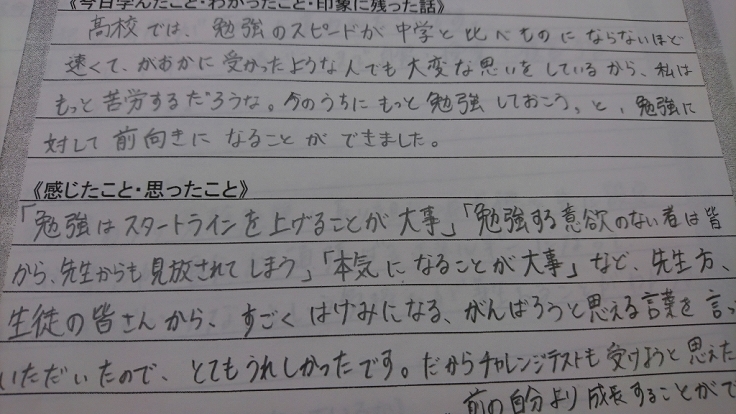 《今日学んだこと・わかったこと・印象に残った話》
高校では、勉強のスピードが中学と比べものにならないほど
速くて、がおかに受かったような人でも大変な思いをしているから、私は
もっと苦労するだろうな。今のうちにもっと勉強しておこう。と、勉強に
対して前向きになることができました。
《感じたこと・思ったこと》
「勉強はスタートラインを上げることが大事」「勉強する意欲のない者は皆
から、先生からも見放されてしまう」「本気になることが大事」など、先生方、
生徒の皆さんから、すごくはげみになる、がんばろうと思える言葉を言っ
いただいたので、とてもうれしかったです。だからチャレンジテストも受けようと思えた
前の自分より成長することがで